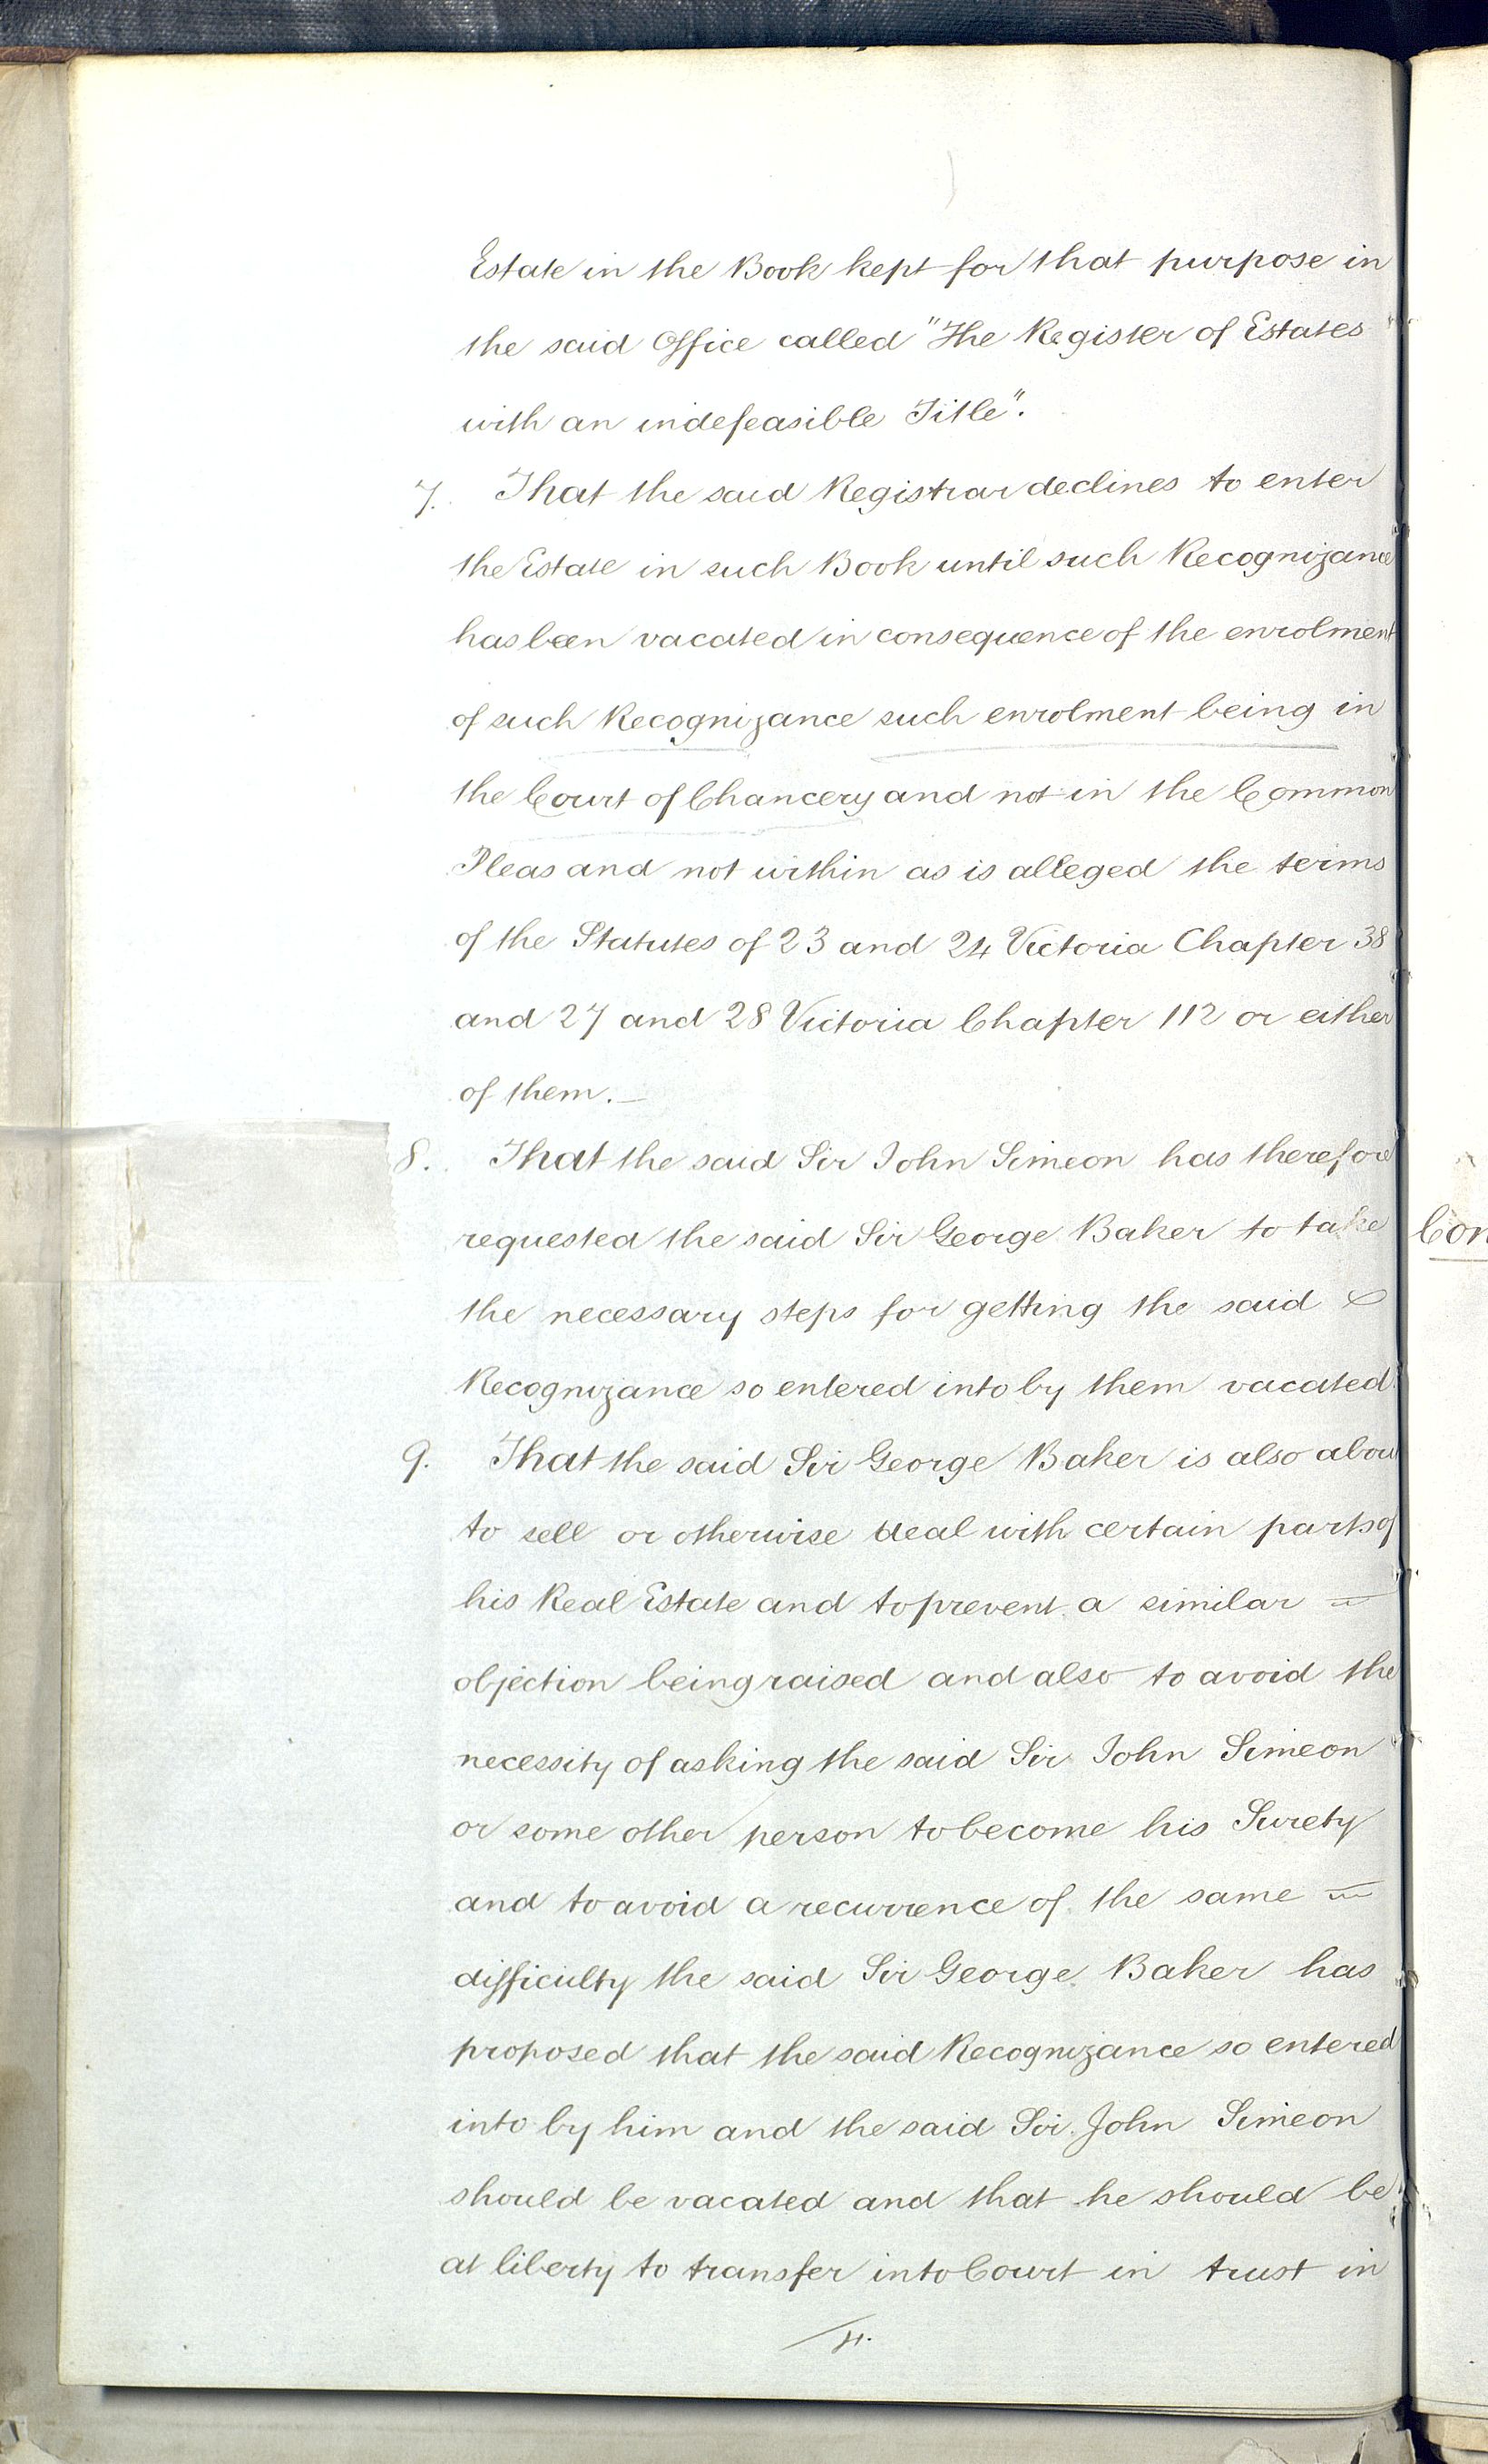 Estate in the Book kept for that purpose in
the said Office called "The Register of Estates
with an indefeasible Title".
7. That the said Registrar declines to enter
the Estate in such Book until such Recognizance
has been vacated in consequence of the enrolment
of such Recognizance such enrolment being in
the Court of Chancery and not in the Common
Pleas and not within as is alleged the terms
of the Statutes of 23 and 24 Victoria Chapter 38
and 27 and 28 Victoria Chapter 112 or either
of them.—
8. That the said Sir John Simeon has therefore
requested the said Sir George Baker to take
the necessary steps for getting the said
Recognizance so entered into by them vacated.
9. That the said Sir George Baker is also abou
to sell or otherwise deal with certain parts of
his Real Estate and to prevent a similar
objection being raised and also to avoid the
necessity of asking the said Sir John Simeon
or some other person to become his Surety
and to avoid a recurrence of the same
difficulty the said Sir George Baker has
proposed that the said Recognizance so entered
into by him and the said Sir John Simeon
should be vacated and that he should be
at liberty to transfer into Court in trust in
4.
Con